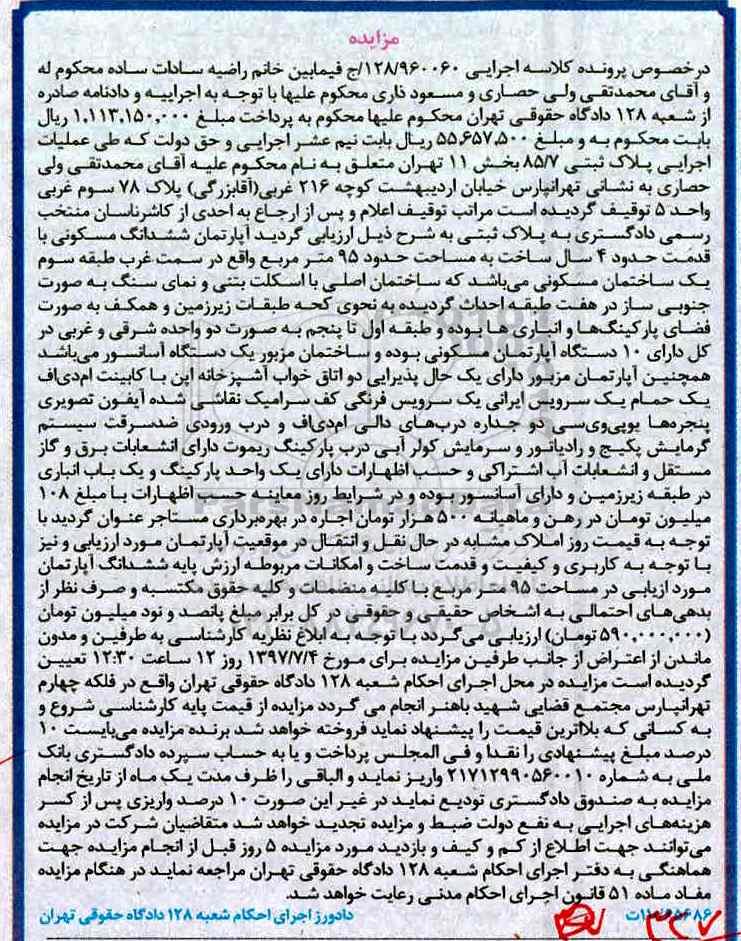 مزایده
درخصوص پرونده کلاسه اجرایی ۱۲۸/۹۶۰۰۶۰/ج فیمابین خانم راضیه سادات ساده محکوم له
و آقای محمدتقی ولی حصاری و مسعود ذاری محکوم علیها با توجه به اجراییه و دادنامه صادره
از شعبه ۱۲۸ دادگاه حقوقی تهران محکوم علیها محکوم به پرداخت مبلغ ۱,۱۱۳,۱۵۰,۰۰۰ ریال
بابت محکوم به و مبلغ ۵۵,۶۵۷,۵۰۰ ریال بابت نیم عشر اجرایی و حق دولت که طی عملیات
اجرایی پلاک ثبتی ۸۵/۷ بخش ۱۱ تهران متعلق به نام محکوم علیه آقای محمدتقی ولی
حصاری به نشانی تهرانپارس خیابان اردیبهشت کوچه ۲۱۶ غربی(آقابزرگی) پلاک ۷۸ سوم غربی
واحد ۵ توقیف گردیده است مراتب توقیف اعلام و پس از ارجاع به احدی از کاشرناسان منتخب
رسمی دادگستری به پلاک ثبتی به شرح ذیل ارزیابی گردید آپارتمان ششدانگ مسکونی با
قدمت حدود ۴ سال ساخت به مساحت حدود ۹۵ متر مربع واقع در سمت غرب طبقه سوم
یک ساختمان مسکونی می‌باشد که ساختمان اصلی با اسکلت بتنی و نمای سنگ به صورت
جنوبی ساز در هفت طبقه احداث گردیده به نحوی کحه طبقات زیرزمین و همکف به صورت
فضای پارکینگ‌ها و انباری ها بوده و طبقه اول تا پنجم به صورت دو واحده شرقی و غربی در
کل دارای ۱۰ دستگاه آپارتمان مسکونی بوده و ساختمان مزبور یک دستگاه آسانسور می‌باشد
همچنین آپارتمان مزبور دارای یک حال پذیرایی دو اتاق خواب آشپزخانه اپن با کابینت ام‌دی‌اف
یک حمام یک سرویس ایرانی یک سرویس فرنگی کف سرامیک نقاشی شده آیفون تصویری
پنجره‌ها یوپی‌وی‌سی دو جداره درب‌های دالی ام‌دی‌اف و درب ورودی ضدسرقت سیستم
گرمایش پکیج و رادیاتور و سرمایش کولر آبی درب پارکینگ ریموت دارای انشعابات برق و گاز
مستقل و انشعابات آب اشتراکی و حسب اظهارات دارای یک واحد پارکینگ و یک باب انباری
در طبقه زیرزمین و دارای آسانسور بوده و در شرایط روز معاینه حسب اظهارات با مبلغ ۱۰۸
میلیون تومان در رهن و ماهیانه ۵۰۰ هزار تومان اجاره در بهره‌برداری مستاجر عنوان گردید با
توجه به قیمت روز املاک مشابه در حال نقل و انتقال در موقعیت آپارتمان مورد ارزیابی و نیز
با توجه به کاربری و کیفیت و قدمت ساخت و امکانات مربوطه ارزش پایه ششدانگ آپارتمان
مورد ازیابی در مساحت ۹۵ متر مربع با کلیه منضمات و کلیه حقوق مکتسبه و صرف نظر از
بدهی‌های احتمالی به اشخاص حقیقی و حقوقی در کل برابر مبلغ پانصد و نود میلیون تومان
(۵۹۰,۰۰۰,۰۰۰ تومان) ارزیابی می‌گردد با توجه به ابلاغ نظریه کارشناسی به طرفین و مدون
ماندن از اعتراض از جانب طرفین مزایده برای مورخ ۱۳۹۷/۷/۴ روز ۱۲ ساعت ۱۲:۳۰ تعیین
گردیده است مزایده در محل اجرای احکام شعبه ۱۲۸ دادگاه حقوقی تهران واقع در فلکه چهارم
تهرانپارس مجتمع قضایی شهید باهنر انجام می گردد مزایده از قیمت پایه کارشناسی شروع و
به کسانی که بلااترین قیمت را پیشنهاد نماید فروخته خواهد شد برنده مزایده می‌بایست ۱۰
درصد مبلغ پیشنهادی را نقدا و فی المجلس پرداخت و یا به حساب سپرده دادگستری بانک
ملی به شماره ۲۱۷۱۲۹۹۰۵۶۰۰۱۰ واریز نماید و الباقی را ظرف مدت یک ماه از تاریخ انجام
مزایده به صندوق دادگستری تودیع نماید در غیر این صورت ۱۰ درصد واریزی پس از کسر
هزینه‌های اجرایی به نفع دولت ضبط و مزایده تجدید خواهد شد متقاضیان شرکت در مزایده
می‌توانند جهت اطلاع از کم و کیف و بازدید مورد مزایده ۵ روز قبل از انجام مزایده جهت
هماهنگی به دفتر اجرای احکام شعبه ۱۲۸ دادگاه حقوقی تهران مراجعه نماید در هنگام مزایده
مفاد ماده ۵۱ قانون اجرای احکام مدنی رعایت خواهد شد.
دادورز اجرای احکام شعبه ۱۲۸ دادگاه حقوقی تهران